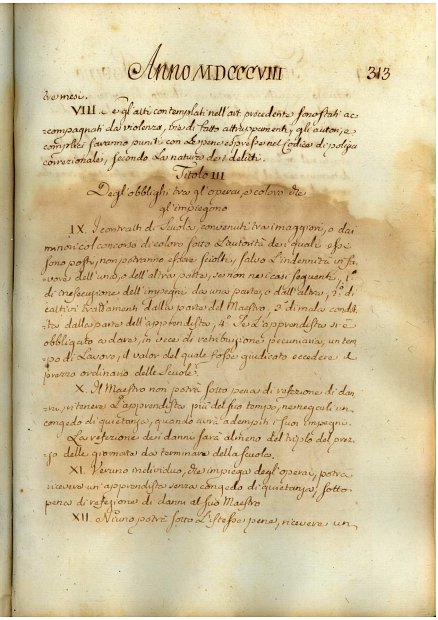 Anno MDCCCVIII 313
tre mesi.
VIII Se gli atti contemplati nell'art. precedente sono stati ac
compagnati da violenza, vie di fatto attruppamenti, gli autori, e
complici saranno puniti con le pene espresse nel Codice di polizia
correzionale, secondo la natura dei delitti.
Titolo III
Degl'obblighi tra gl'operai, e coloro che
gl'impiegono
IX. I contratti di scuola, convenuti tra i maggiori, o dai
minori col concorso di coloro sotto l'autorità dei quali essi
sono posti, non potranno essere sciolti, salvo l'indennità in fa
vore dell'una, o dell'altra parte, se non nei casi seguenti, 1.º
di inesecuzione dell'impegni da una parte, o dall'altra, 2.º di
cattivi trattamenti dalla parte del Maestro, 3.º di mala condot
ta dalla parte dell'apprendista, 4.º Se l'apprendista si è
obbligato a dare, in vece di retribuzione pecuniaria, un tem
po di lavoro, il valor del quale fosse giudicato eccedere il
prezzo ordinario delle scuole.
X. Il Maestro non potrà sotto pena di refezione di dan
ni, ritenere l'apprendista più del suo tempo, ne negarli un
congedo di quietanza, quando avrà adempiti i suoi impegni.
La refezione dei danni sarà almeno del triplo del prez
zo delle giornate da terminare della scuola.
XI. Veruno individuo, che impiega degl'operai, potrà
ricevere un'apprendista senza congedo di quietanza, sotto
pena di refezione di danni al suo Maestro
XII. Niuno potrà sotto l'istesse pene, ricevere un